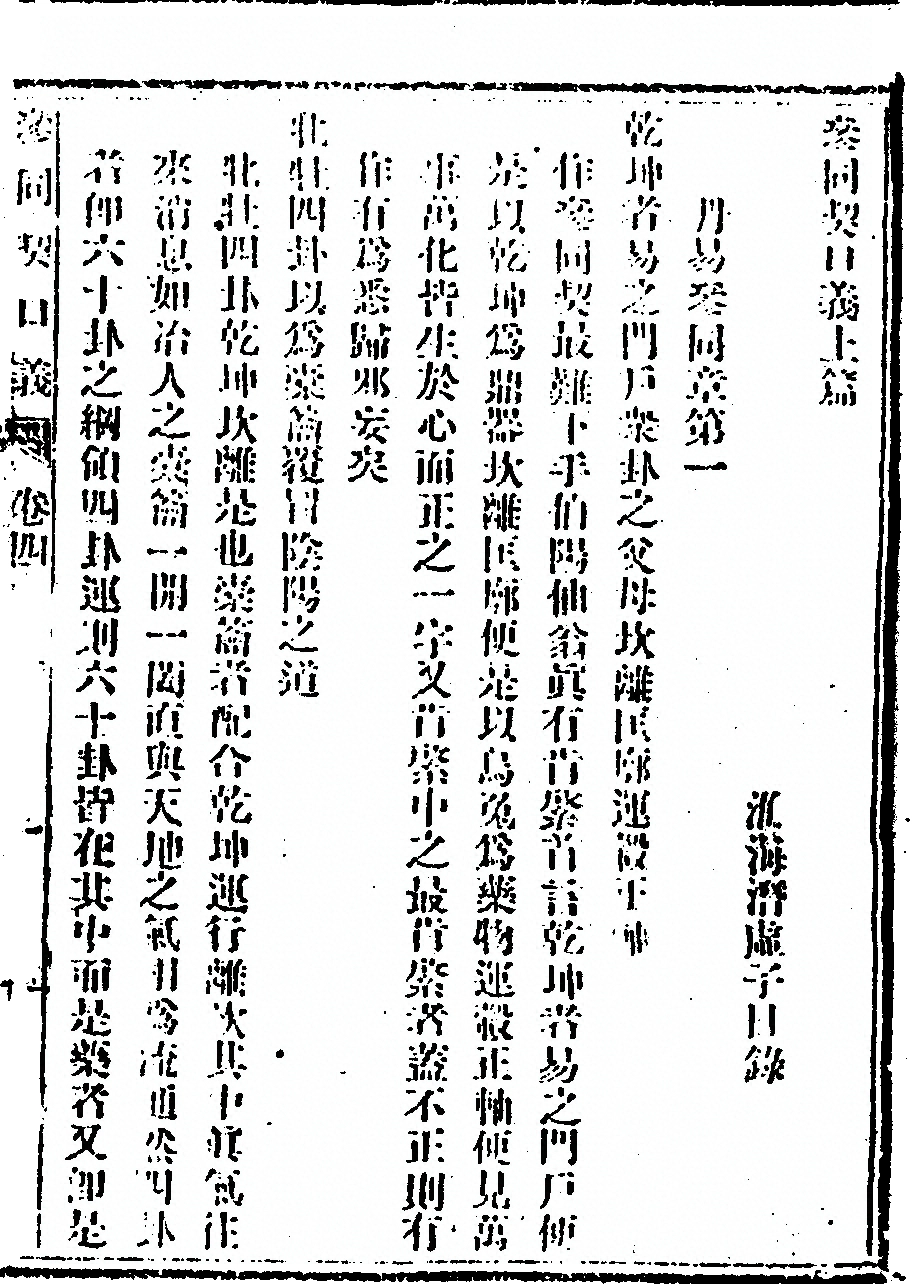 叅同契口義上篇
滙海潛虛子口錄
丹易叅同章第一
乾坤者易之門戶衆卦之父母坎離匡廓運轂正軸
作叅同契最難下手伯陽仙翁眞有肯綮首言乾坤者易之門戶便
是以乾坤爲鼎器坎離匡廓便是以烏兔爲藥物運轂正軸便見萬
事萬化皆生於心而正之一字又肯綮中之最肯綮者蓋不正則有
作有爲悉歸邪妄矣
牝牡四卦以爲槖籥覆冒陰陽之道
牝牡四卦乾坤坎離是也槖籥者配合乾坤運行離坎其中眞氣往
來消息如冶人之槖籥一開一闔直與天地之氣相爲流通葢四卦
者卽六十卦之綱領四卦運則六十卦皆在其中而是藥者又卽是
叅同契口義 卷四